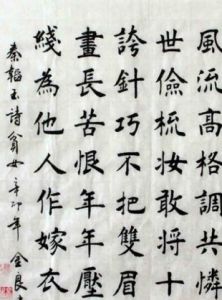 風流高格調共憐
世儉梳妆敢將十
誇針巧不把雙眉
畫長苦恨年年壓
綫為他人作嫁衣
秦韜玉詩貧女辛卯年金良